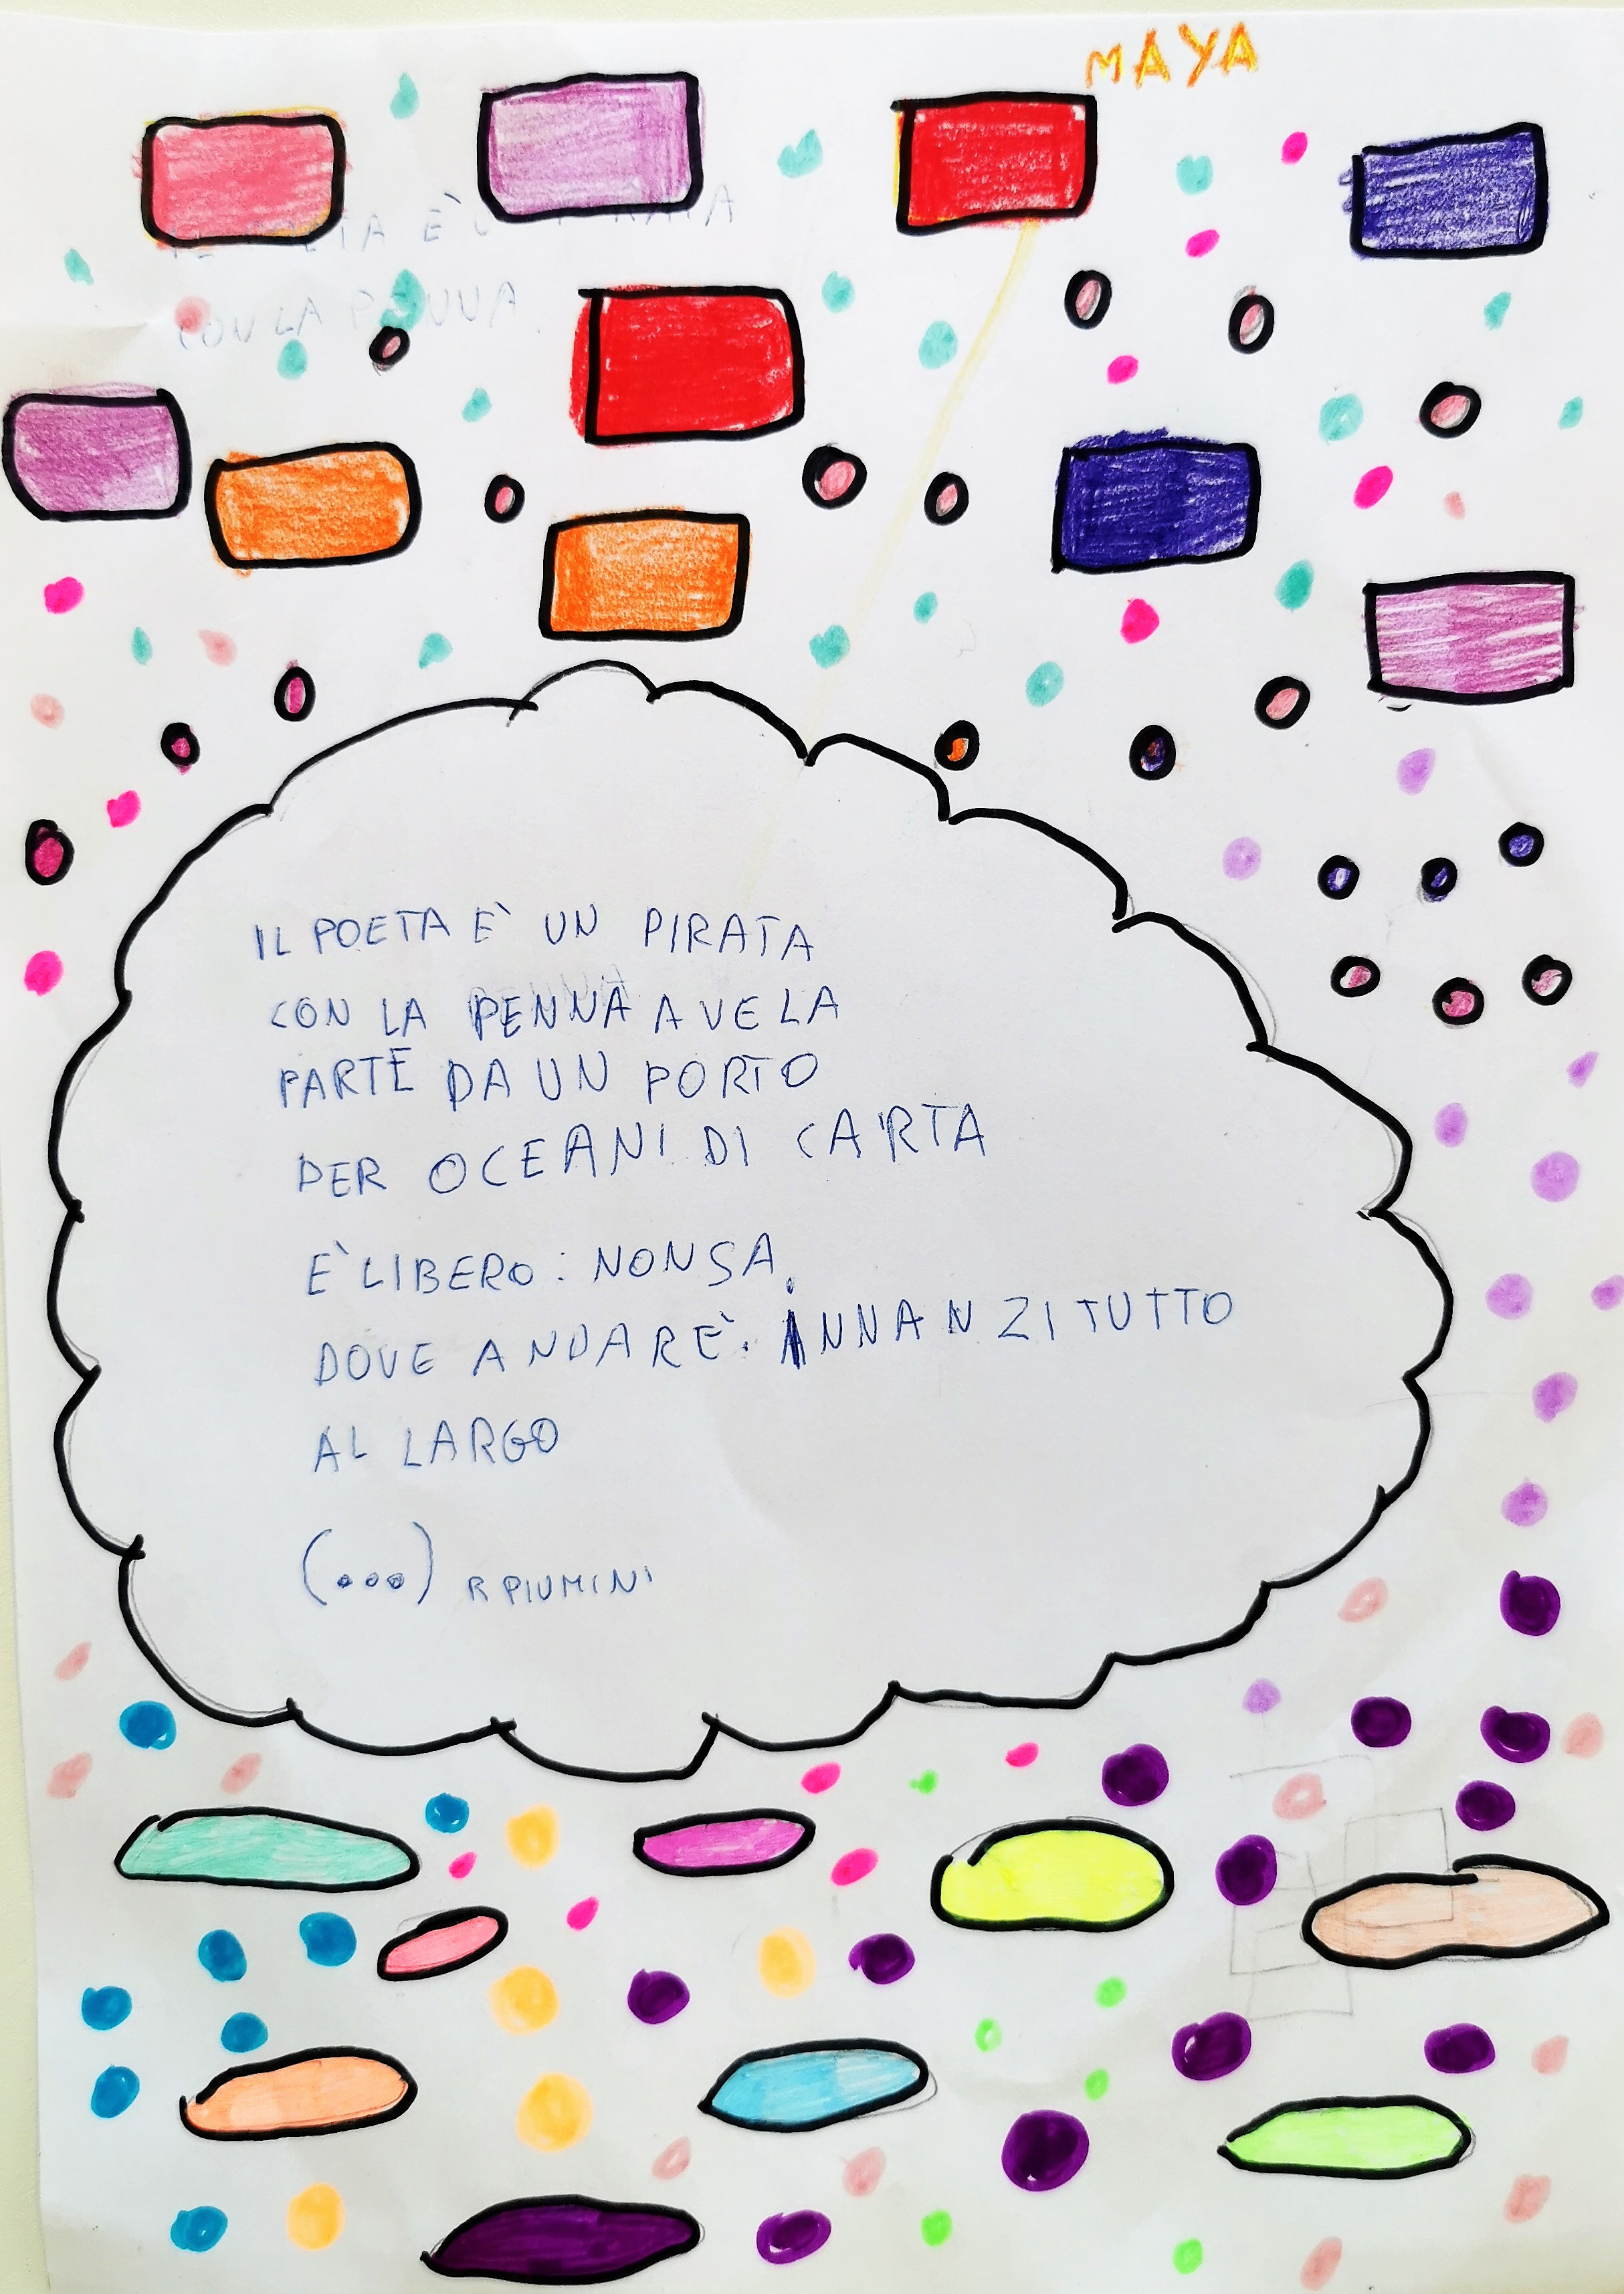 MAYA
CON LA PENNA
IL POETA E` UN PIRATA
CON LA PENNA A VELA
PARTE DA UN PORTO
PER OCEANI DI CARTA
E` LIBERO: NON SA
DOVE ANDARE`. INNANZITUTTO
AL LARGO
(...) R PIUMINI